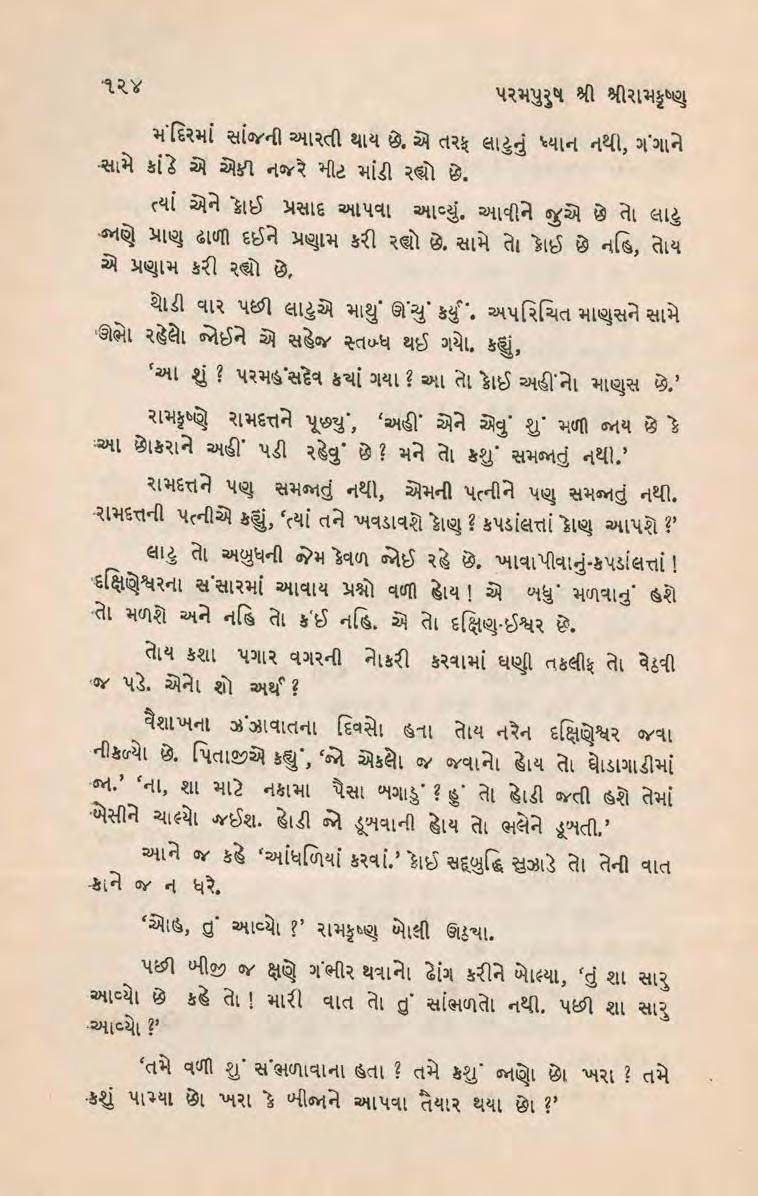 ૧૨૪
પરમપુરુષ શ્રી શ્રીરામકૃષ્ણ
મંદિરમાં સાંજની આરતી થાય છે. એ તરફ લાટુનું ધ્યાન નથી, ગંગાને
સામે કાંઠે એ એકી નજરે મીટ માંડી રહ્યો છે.
ત્યાં એને કોઈ પ્રસાદ આપવા આવ્યું. આવીને જુએ છે તો લાટુ
જાણે પ્રાણ ઢાળી દઈને પ્રણામ કરી રહ્યો છે. સામે તો કોઈ છે નહિ, તોય
એ પ્રણામ કરી રહ્યો છે.
થોડી વાર પછી લાટુએ માથું ઊંચું કર્યું. અપરિચિત માણસને સામે
ઊભો રહેલો જોઈને એ સહેજ સ્તબ્ધ થઈ ગયો. કહ્યું,
‘આ શું ? પરમહંસદેવ કયાં ગયા ? આ તો કોઈ અહીંનો માણસ છે.’
રામકૃષ્ણે રામદત્તને પૂછ્યું, ‘અહીં એને એવું શું મળી જાય છે કે
આ છોકરાને અહીં પડી રહેવું છે ? મને તો કશું સમજાતું નથી.’
રામદત્તને પણ સમજાતું નથી, એમની પત્નીને પણ સમજાતું નથી.
રામદત્તની પત્નીએ કહ્યું, ‘ત્યાં તને ખવડાવશે કોણ ? કપડાંલત્તાં કોણ આપશે ?’
લાટુ તો અબુધની જેમ કેવળ જોઈ રહે છે. ખાવાપીવાનું-કપડાંલત્તાં !
દક્ષિણેશ્વરના સંસારમાં આવાય પ્રશ્નો વળી હોય ! એ બધું મળવાનું હશે
તો મળશે અને નહિ તો કંઈ નહિ. એ તો દક્ષિણ-ઈશ્વર છે.
તોય કશા પગાર વગરની નોકરી કરવામાં ઘણી તકલીફ તો વેઠવી
જ પડે. એનો શો અર્થ ?
વૈશાખના ઝંઝાવાતના દિવસો હતા તોય નરેન દક્ષિણેશ્વર જવા
નીકળ્યો છે. પિતાજીએ કહ્યું, ‘જો એકલો જ જવાનો હોય તો ઘોડાગાડીમાં
જા.’ ‘ના, શા માટે નકામા પૈસા બગાડું ? હું તો હોડી જતી હશે તેમાં
બેસીને ચાલ્યો જઈશ. હોડી જો ડૂબવાની હોય તો ભલેને ડૂબતી.’
આને જ કહે ‘આંધળિયાં કરવાં.’ કોઈ સદ્‌બુદ્ધિ સુઝાડે તો તેની વાત
કાને જ ન ધરે.
‘ઓહ, તું આવ્યો ?’ રામકૃષ્ણ બોલી ઊઠ્યા.
પછી બીજી જ ક્ષણે ગંભીર થવાનો ઢોંગ કરીને બોલ્યા, ‘તું શા સારુ
આવ્યો છે કહે તો ! મારી વાત તો તું સાંભળતો નથી. પછી શા સારુ
આવ્યો ?’
‘તમે વળી શું સંભળાવાના હતા ? તમે કશું જાણો છો ખરા ? તમે
કશું પામ્યા છો ખરા કે બીજાને આપવા તૈયાર થયા છો ?’